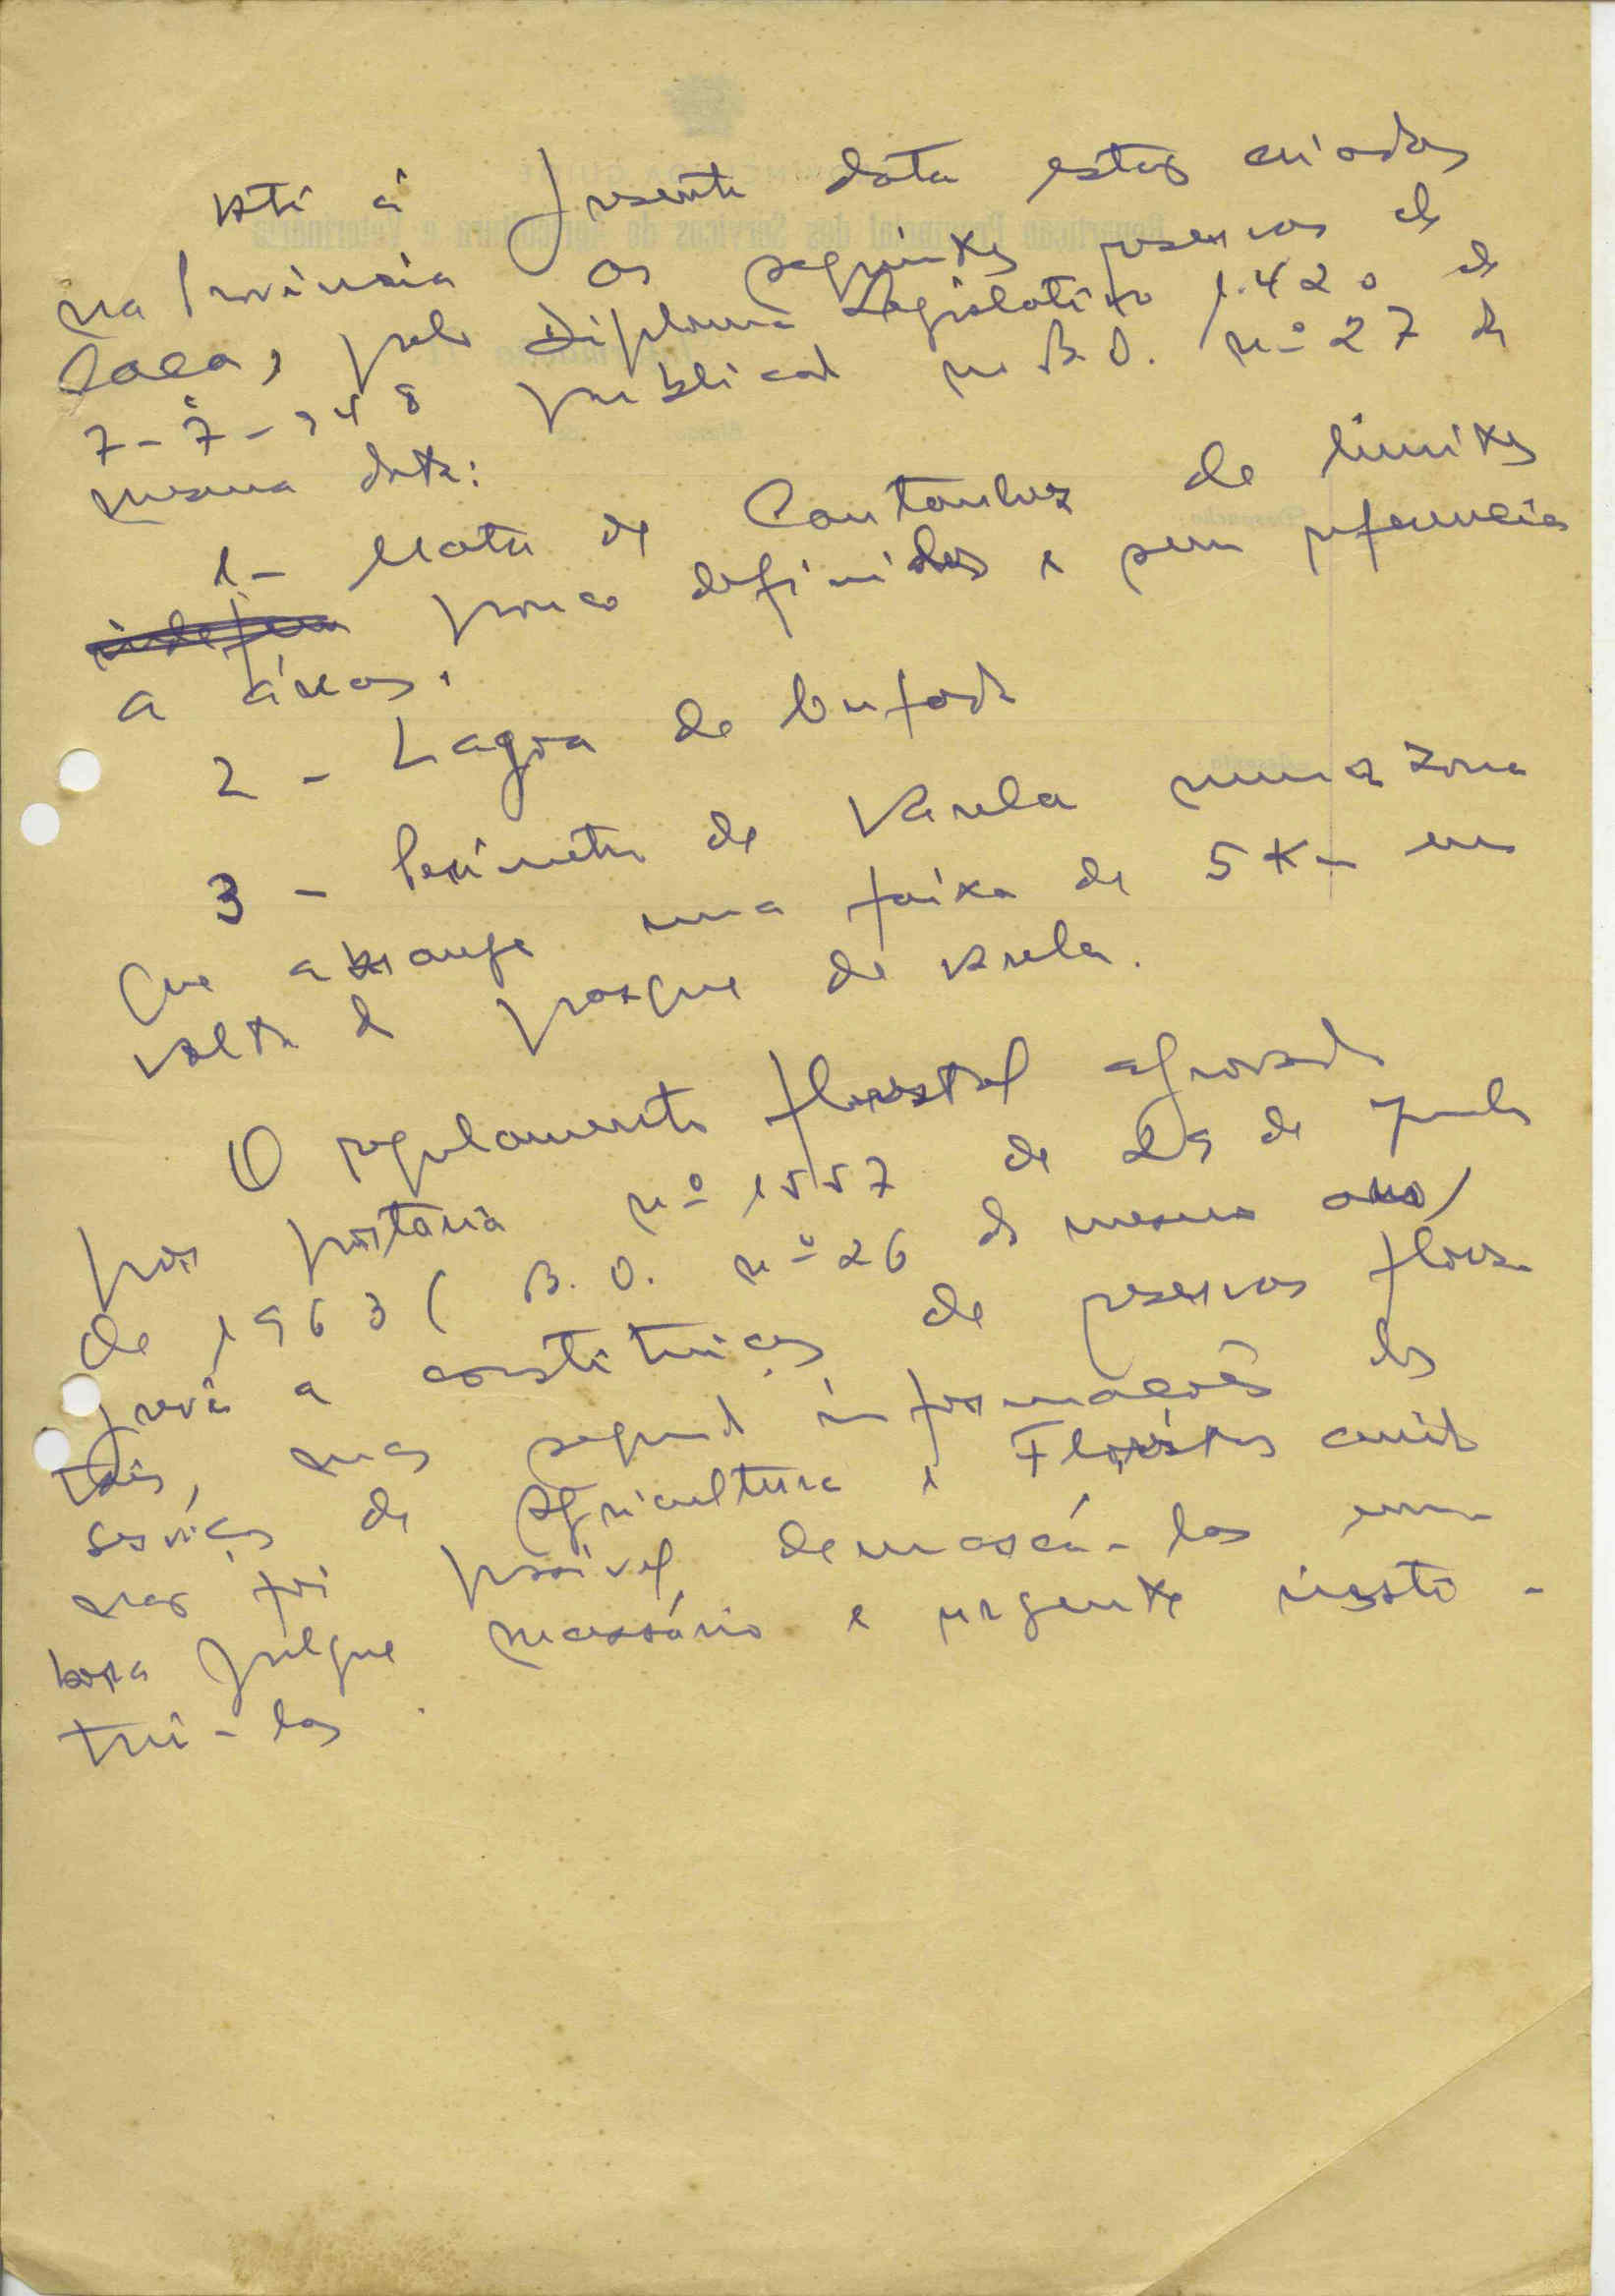 Até à presente data estão criadas
na Província as seguintes reservas de
caça, pelo Diploma Legislativo 1.420 de
7-7-948 publicado no B.O. nº 27 da
mesma data:
1- Mata de Cantanhez de limites
pouco definidos e sem referencia
a áreas.
2 - Lagoa de Cufada
3 - Perimetro de Varela numa zona
que abrange uma faixa de 5 Km em
volta do parque de Varela.
O regulamento florestal aprovado
por portaria nº 1557 de 29 de Junho
de 1963 (B.O. nº 26 do mesmo ano)
prevê a constituição de reservas flores-
tais, mas segundo informações dos
serviços de Agricultura e Florestas ainda
não foi possivel demarcá-las em-
bora julgue necessário e urgente insti-
tui-las.